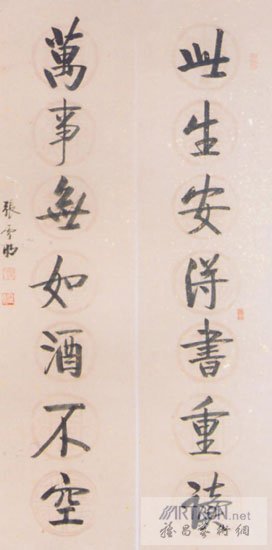 此生安得書重讀
萬事無如酒不空
張
ARTRON.net
雅昌藝術網